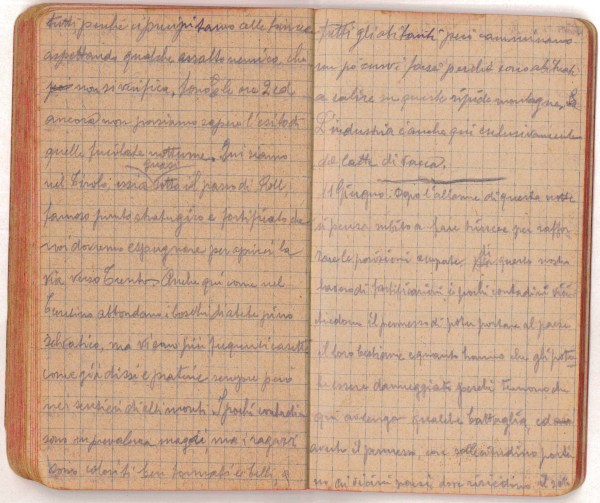 tutti perché si precipitano alle trincee
aspettando qualche assalto nemico, che
però non si verifica. Sono le ore 2 ed
ancora non possiamo sapere l'esito di
quelle fucilate notturne. Qui siamo
quasi
nel Tirolo, sotto il passo di Roll,
famoso punto strategico e fortificato da
noi dovremo espugnare per aprirci la
via verso Trento. Anche qui come nel
Trentino abbondano i boschi d'abete e pino
selvatico, ma vi sono più frequenti casette
come già dissi e praterie sempre però
nei sentieri degli monti. I pochi contadini
sono in prevalenza maggi, ma i ragazzi
sono coloriti ben formati e belli,
tutti gli abitanti poi camminano
un pò curvi forse perché sono abituati
a salire su queste ripide montagne.
L'industria è anche qui esclusivamente
da latte di vacca.
11 Giugno. Dopo l'allarme di questa notte
si pensa subito a fare trincee per raffor-
zare le posizioni occupate. A questo nostro
lavoro di fortificazioni, i pochi contadini
chiedono il permesso di poter portare al paese
il loro bestiame e quanto hanno che gli potreb-
be essere danneggiato perché temono che
qui avvenga qualche battaglia, ed
avuto il permesso, con sollecitudine parti-
no, ai vicini paesi, dove